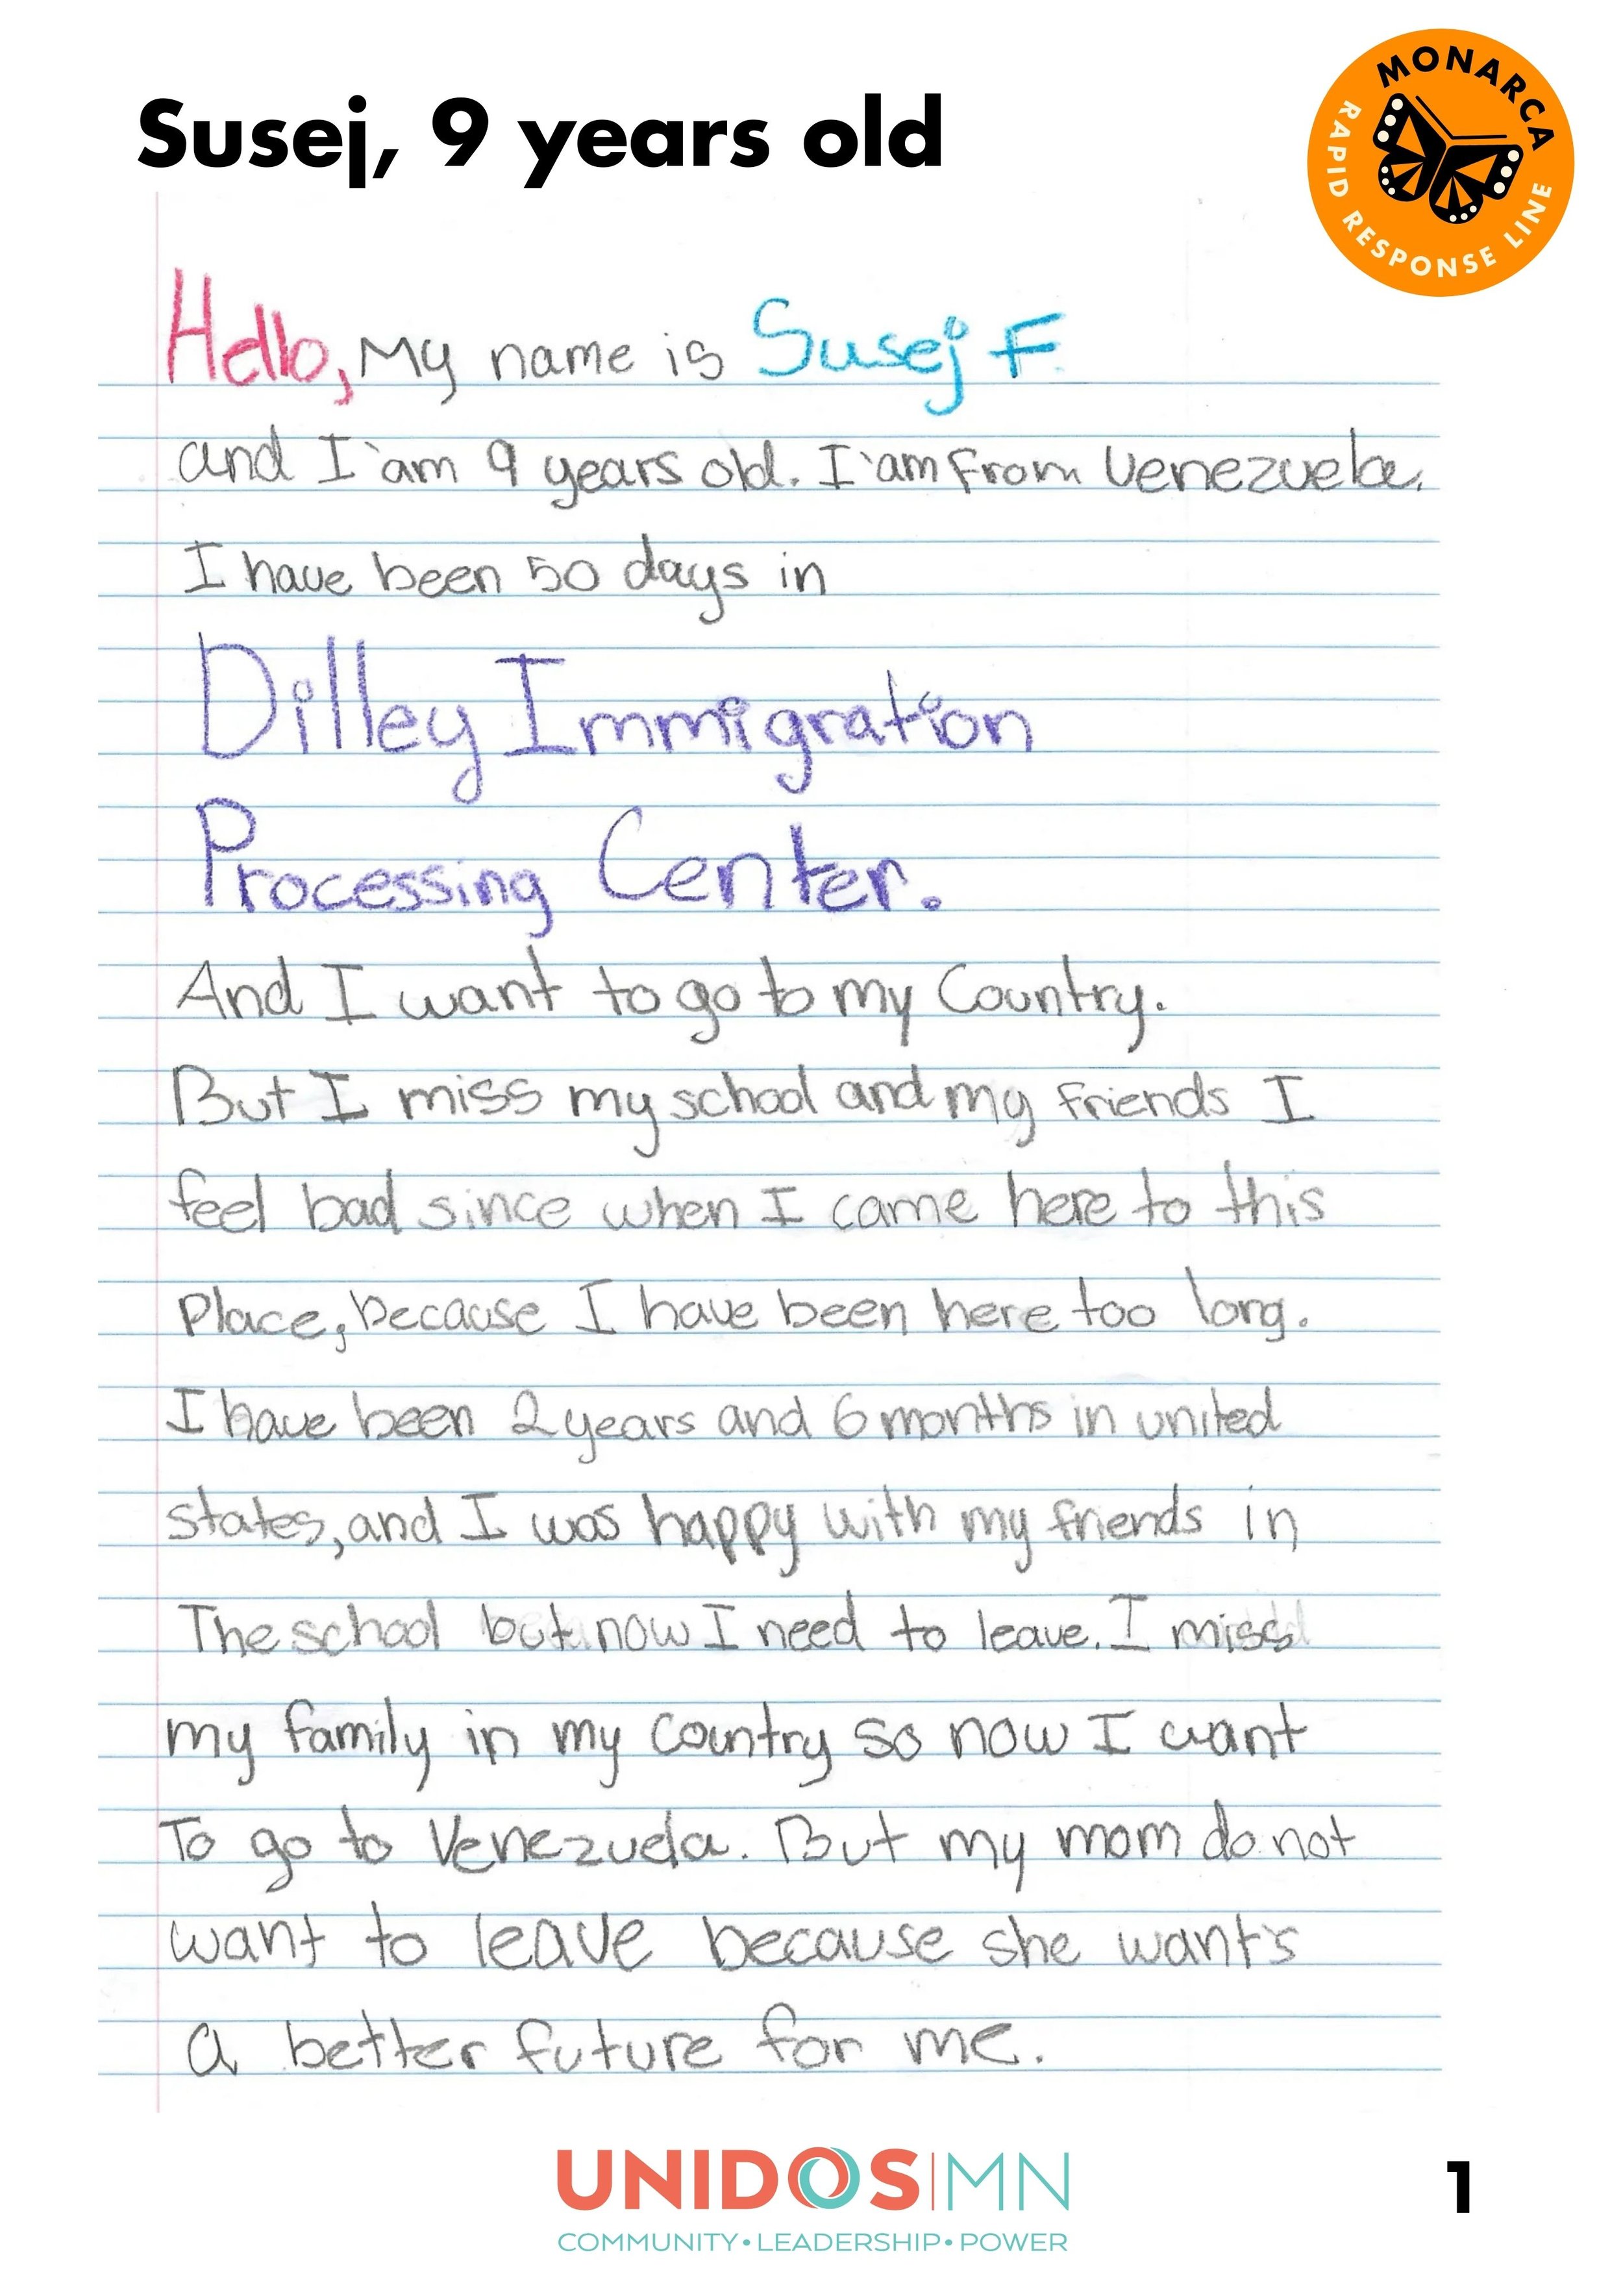 Susej, 9 years old
MONARCA
RAPID RESPONSE LINE
Hello, My name is Susej F.
and I'am 9 years old. I'am from Venezuela.
I have been 50 days in
Dilley Immigration
Processing Center.
And I want to go to my Country.
But I miss my school and my friends I
feel bad since when I came here to this
Place, because I have been here too long.
I have been 2 years and 6 months in united
states, and I was happy with my friends in
The school but now I need to leave. I miss
my family in my country so now I want
To go to Venezuela. But my mom do not
want to leave because she want's
a better future for me.
UNIDOS|MN
COMMUNITY•LEADERSHIP•POWER
1